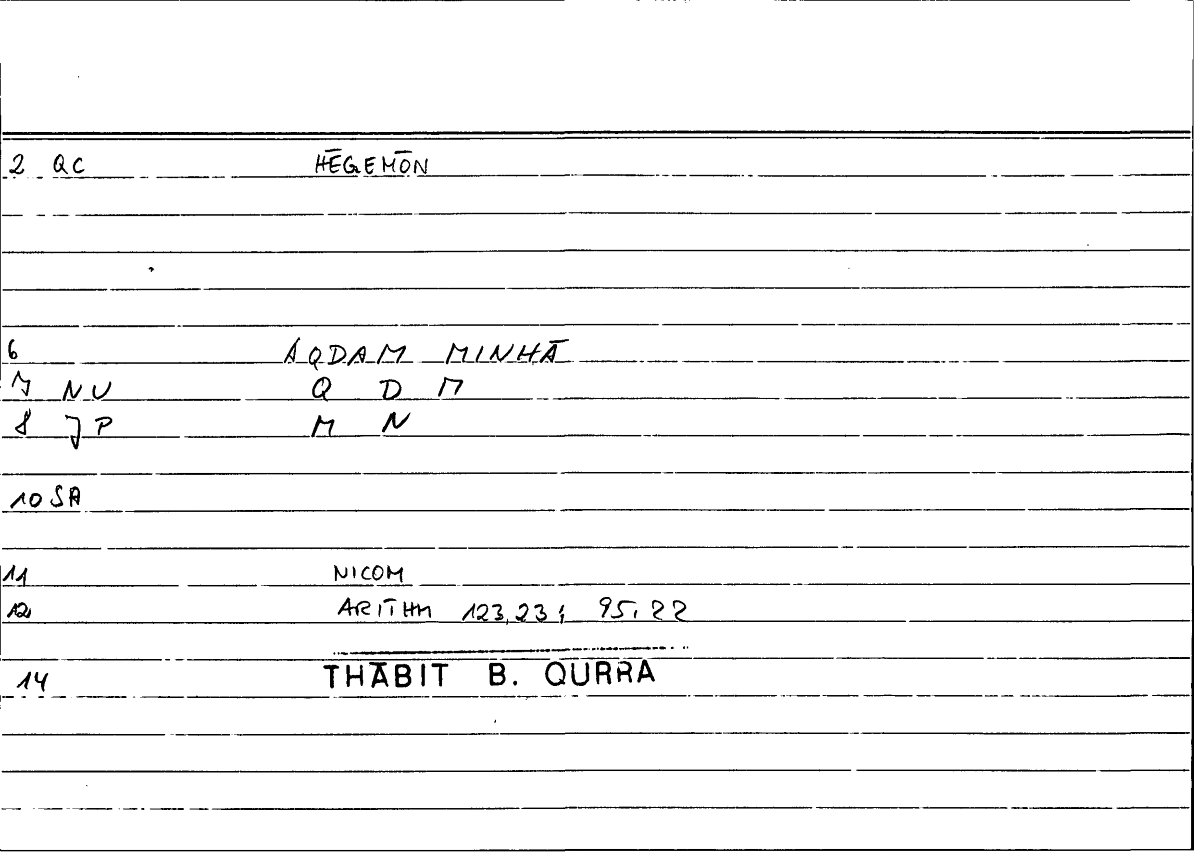 2 QC HĒGEMŌN
6 AQDAM MINHĀ
7 NU Q D M
8 JP M N
10 SA
11 NICOM
12 ARITHM 123,23; 95,22
14 THĀBIT B. QURRA